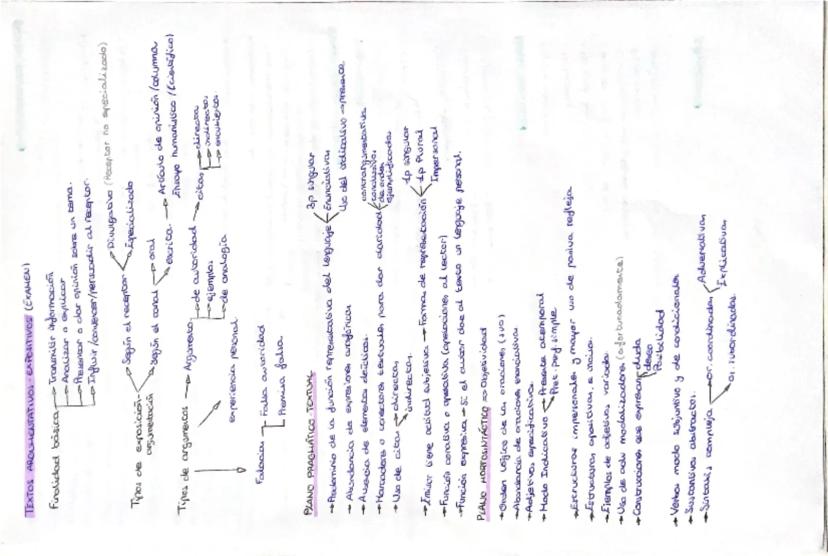 TEXTOS ARGUMENTATIVOS - EXPOSITIVOS (EXAMEN)
Finalidad básica → Transmitir información
→ Analizar o explicar
→ Presentar o dar opinión sobre un tema.
→ Influir/convencer/persuadir al receptor.
Tipos de exposición argumentación
→ Según el receptor → Divulgativo (Receptor no especializado)
→ Especializado
→ Según el canal → oral
→ escrita → Artículo de opinión/columna
Ensayo humanístico/(científico)
Tipos de argumentos → Argumento → de autoridad → citas → directas
→ indirectas
→ encubiertas
→ ejemplos
→ de analogía
experiencia personal
Falacias → Falsa autoridad
→ Premisa falsa.
PLANO PRAGMÁTICO-TEXTUAL
→ Predominio de la función representativa del lenguaje → 3p singular
Enunciativas
Uso del indicativo → presente
→ Abundancia de expresiones anafóricas
→ Ausencia de elementos deícticos.
→ Marcadores o conectores textuales para dar claridad → contraargumentativos
conclusivos
de orden
ejemplificadores
→ Uso de citas → directas
→ indirectas.
→ Emisor tiene actitud subjetiva → Formas de representación → 1p singular
→ 1p Plural
Impersonal
→ Función conativa o apelativa (apelaciones al lector)
→ Función expresiva → si el autor dota al texto un lenguaje personal.
PLANO MORFOSINTÁCTICO => Objetividad
→ Orden lógico de las oraciones (SVO)
→ Abundancia de oraciones enunciativas
→ Adjetivos especificativos.
→ Modo Indicativo → Presente atemporal
Pret. perf simple
→ Estructuras impersonales y mayor uso de pasiva refleja
→ Estructuras apositivas e incisos.
→ Ejemplos de adjetivos variados
→ Uso de adv modalizadores (afortunadamente)
→ Construcciones que expresan: duda
deseo
Posibilidad
→ Verbos modo subjuntivo y de condicionales
→ Sustantivos abstractos.
→ Sintaxis compleja → or. coordinadas → Adversativas
Explicativas
→ or. subordinadas.